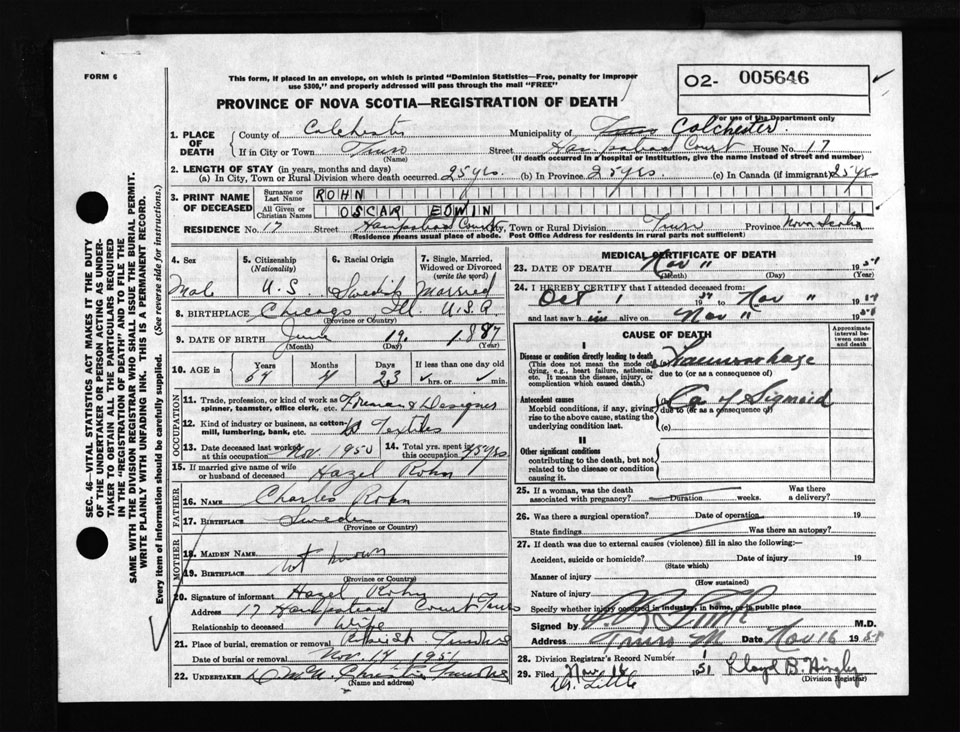 FORM 6
This form, if placed in an envelope, on which is printed "Dominion Statistics—Free, penalty for improper
use $300," and properly addressed will pass through the mail "FREE"
PROVINCE OF NOVA SCOTIA—REGISTRATION OF DEATH
02- 005646
For use of the Department only
1. PLACE OF DEATH
County of Colchester Municipality of Truro Colchester.
If in City or Town Truro Street Hampstead Court House No. 17
(Name) (If death occurred in a hospital or institution, give the name instead of street and number)
2. LENGTH OF STAY (in years, months and days)
(a) In City, Town or Rural Division where death occurred 25 yrs. (b) In Province 25 yrs. (c) In Canada (if immigrant) 25 yrs
3. PRINT NAME OF DECEASED
Surname or Last Name ROHN
All Given or Christian Names OSCAR EDWIN
RESIDENCE No. 17 Street Hampstead Court City, Town or Rural Division Truro Province Nova Scotia
(Residence means usual place of abode. Post Office Address for residents in rural parts not sufficient)
4. Sex
Male
5. Citizenship
(Nationality)
U.S.
6. Racial Origin
Swedish
7. Single, Married,
Widowed or Divorced
(write the word)
Married
8. BIRTHPLACE Chicago Ill. U.S.A.
(Province or Country)
9. DATE OF BIRTH June 19 1887
(Month) (Day) (Year)
10. AGE in
Years Months Days If less than one day old
64 4 23 hrs. or min.
OCCUPATION
11. Trade, profession, or kind of work as
spinner, teamster, office clerk, etc. Foreman & Designer
12. Kind of industry or business, as cotton-
mill, lumbering, bank, etc. Textiles
13. Date deceased last worked
at this occupation Nov. 1950
14. Total yrs. spent in
this occupation 25 yrs.
15. If married give name of wife
or husband of deceased Hazel Rohn
FATHER
16. NAME Charles Rohn
17. BIRTHPLACE Sweden
(Province or Country)
MOTHER
18. MAIDEN NAME
19. BIRTHPLACE not known
(Province or Country)
20. Signature of informant Hazel Rohn
Address 17 Hampstead Court Truro
Relationship to deceased Wife
21. Place of burial, cremation or removal Truro NS
Date of burial or removal Nov. 14 1951
22. UNDERTAKER Christie Truro NS
(Name and address)
MEDICAL CERTIFICATE OF DEATH
23. DATE OF DEATH Nov 11 1951
(Month) (Day)
24. I HEREBY CERTIFY that I attended deceased from:
Oct 1 1951 to Nov 11 1951
and last saw him alive on Nov 11 1951
CAUSE OF DEATH
Approximate
interval be-
tween onset
and death
I
Disease or condition directly leading to death
(This does not mean the mode of
dying, e.g., heart failure, asthenia,
etc. It means the disease, injury, or
complication which caused death.)
(a) Haemorrhage
due to (or as a consequence of)
Antecedent causes
Morbid conditions, if any, giving
rise to the above cause, stating the
underlying condition last.
(b) Ca of Sigmoid
due to (or as a consequence of)
(c)
II
Other significant conditions
contributing to the death, but not
related to the disease or condition
causing it.
25. If a woman, was the death
associated with pregnancy? Duration weeks. Was there
a delivery?
26. Was there a surgical operation? Date of operation 19
State findings Was there an autopsy?
27. If death was due to external causes (violence) fill in also the following:—
Accident, suicide or homicide? Date of injury 19
(State which)
Manner of injury
(How sustained)
Nature of injury
Specify whether injury occurred in industry, in home, or in public place
Signed by M.D.
Address Truro Date Nov 16 1951
28. Division Registrar's Record Number
29. Filed Nov 16 1951 Lloyd B.
(Division Registrar)
Dr. Little
SEC. 46—VITAL STATISTICS ACT MAKES IT THE DUTY
OF THE UNDERTAKER OR PERSON ACTING AS UNDER-
TAKER TO OBTAIN ALL THE PARTICULARS REQUIRED
IN THE "REGISTRATION OF DEATH" AND TO FILE THE
SAME WITH THE DIVISION REGISTRAR WHO SHALL ISSUE THE BURIAL PERMIT.
WRITE PLAINLY WITH UNFADING INK. THIS IS A PERMANENT RECORD.
Every item of information should be carefully supplied. (See reverse side for instructions.)